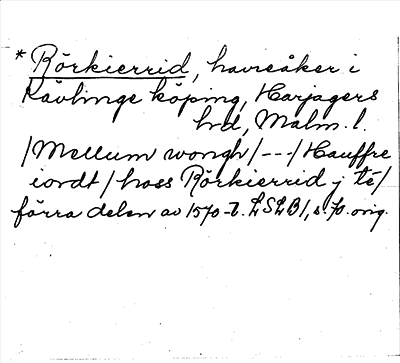 * Rörkierrid, havreåker i
Kävlinge köping, Harjagers
hrd, Malm. l.
/Mellum wongh/---/Hauffre
iordt/hoss Rörkierrid j té/
förra delen av 1570-t. LSLB1, s. 70. orig.